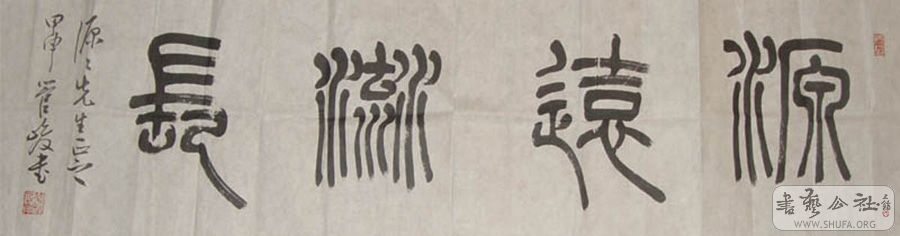 源遠流長
源之先生正之
甲申管峻书
書藝公社
WWW.SHUFA.ORG